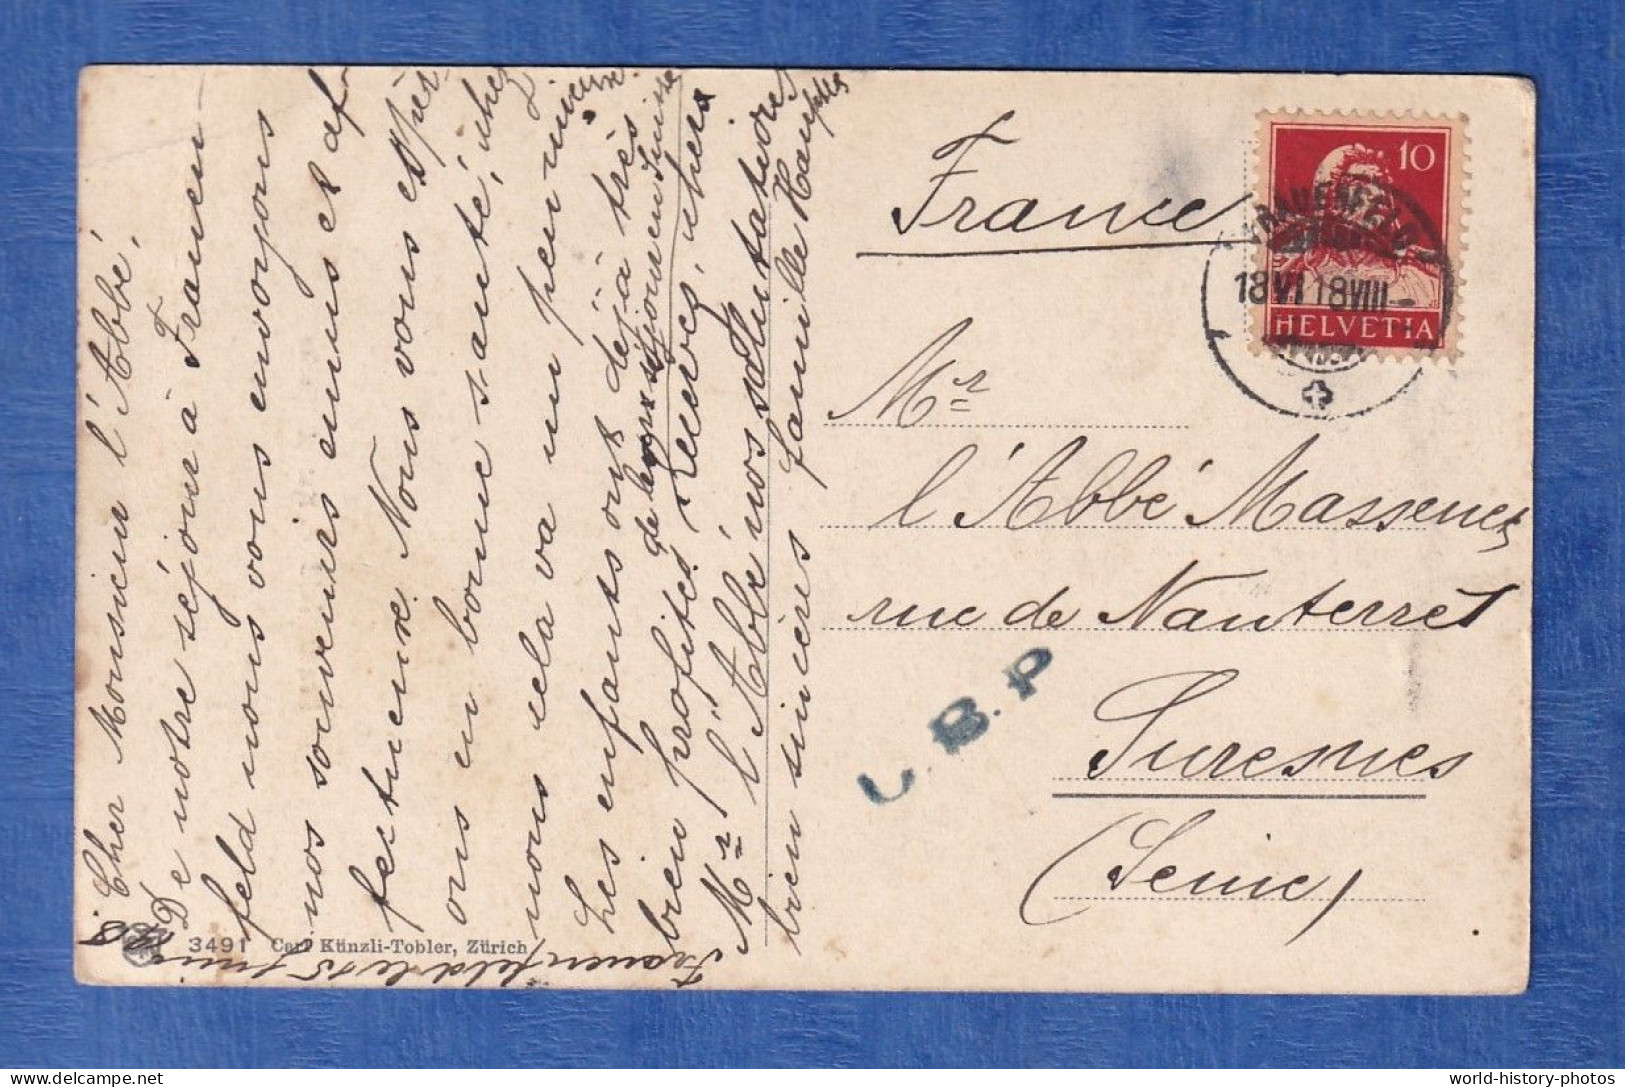 Cher Monsieur l'Abbé,
De notre séjour à Frauen-
feld nous vous envoyons
nos souvenirs émus et af-
fectueux. Nous vous espér-
ons en bonne santé, chez
nous cela va un peu mieux.
Les enfants ont déjà très
bien profités de leur séjour en Suisse
Recevez, cher
Mr l'Abbé nos salutations
bien sincères famille
Frauenfeld le 15 Juin 1918.
3491 Carl Künzli-Tobler, Zürich
France
10
HELVETIA
FRAUENFELD
18 VI 18 VIII
Mr
l'Abbé Massenet
rue de Nanterre 1
Suresnes
(Seine)
L.B.P
world-history-photos
delcampe.net